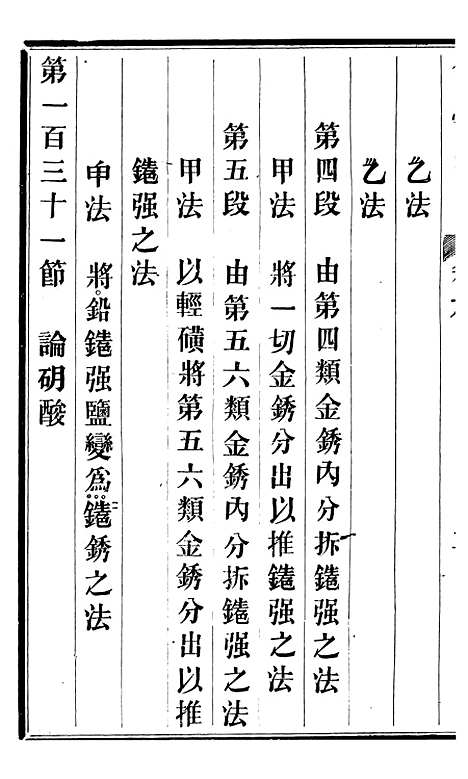 乙法
乙法
第四段 由第四類金銹內分拆鐯强之法
甲法 將一切金銹分出以推鐯强之法
第五段 由第五六類金銹內分拆鐯强之法
甲法 以輕磺將第五六類金銹分出以推
鐯强之法
申法 將鉛鐯强鹽變為鐯銹之法
第一百三十一節 論硝酸